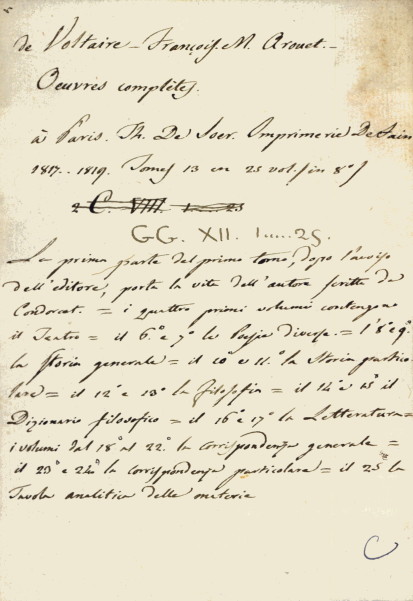 de Voltaire - François. M. Arouet.-
Oeuvres complètes.
à Paris. Th. De Soer. Imprimerie De
1817.. 1819. Tomes 13 en 25 vol. in 8°
2 C. VIII. 1....25
GG. XII. 1.....25.
La prima parte del primo tomo, dopo l'avviso
dell'editore, porta la vita dell'autore scritta da
Condorcet. = i quattro primi volumi contengon
il Teatro = il 6.° e 7.° le Poesie diverse. = l'8° e 9.°
la Storia generale = il 10° e 11.° la Storia partico
lare = il 12° e 13° la filosofia = il 14° e 15° il
Dizionario filosofico = il 16° e 17° la Letteratura =
i volumi dal 18° al 22.° la corrispondenza generale =
il 23° e 24° la corrispondenza particolare = il 25 la
Tavola analitica delle materie
C